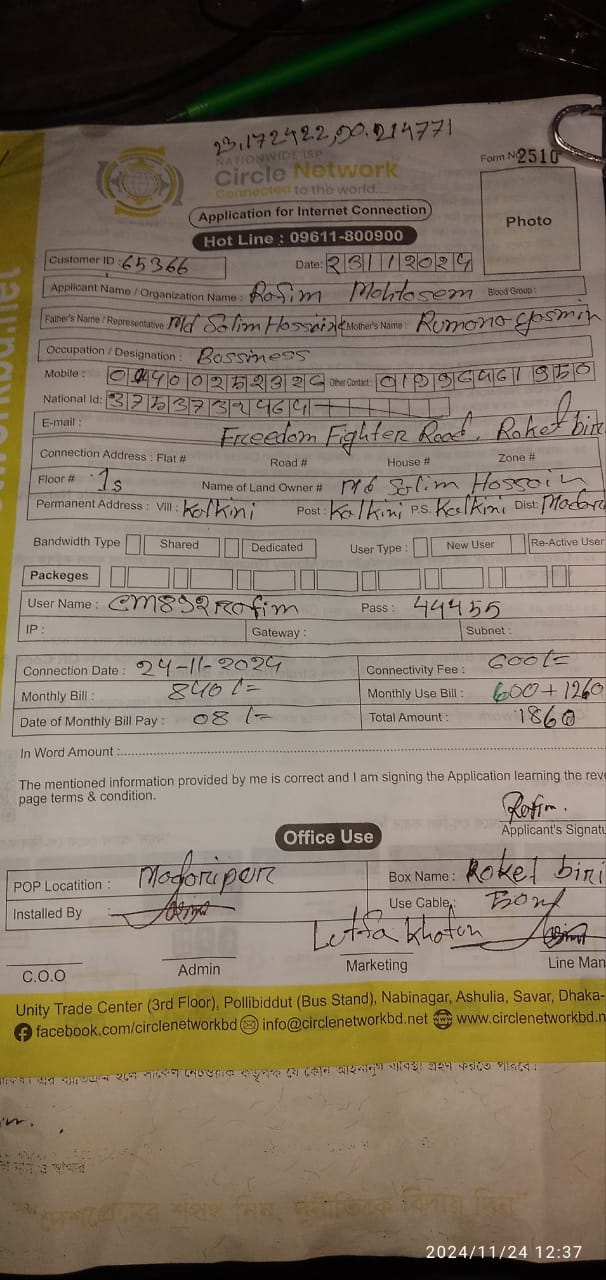 23.172422,90.214771
NATIONWIDE ISP
Circle Network
Connected to the world...
Form No 2510
Application for Internet Connection
Photo
Hot Line : 09611-800900
Customer ID : 65366 Date: 23112024
Applicant Name / Organization Name : Rafim Mohtosem Blood Group :
Father's Name / Representative Md Solim Hossain Mother's Name : Rumona yosmin
Occupation / Designation : Bossiness
Mobile : Other Contact :
National Id: 3753732464
E-mail :
Freedom Fighter Road, Roket biri
Connection Address : Flat # Road # House # Zone #
Floor # 1s Name of Land Owner # Md Solim Hossain
Permanent Address : Vill : Kalkini Post : Kalkini P.S. Kalkini Dist: Madar
Bandwidth Type Shared Dedicated User Type : New User Re-Active User
Packeges
User Name : CM892Rafim Pass : 44455
IP : Gateway : Subnet :
Connection Date : 24-11-2024 Connectivity Fee : 600/=
Monthly Bill : 840/= Monthly Use Bill : 600+1260
Date of Monthly Bill Pay : 08 /= Total Amount : 1860
In Word Amount :
The mentioned information provided by me is correct and I am signing the Application learning the rev
page terms & condition.
Rafim.
Applicant's Signatu
Office Use
POP Locatition : Madaripur Box Name : Roket biri
Installed By Use Cable : 50m
Lutfa khatun
C.O.O Admin Marketing Line Man
Unity Trade Center (3rd Floor), Pollibiddut (Bus Stand), Nabinagar, Ashulia, Savar, Dhaka-
facebook.com/circlenetworkbd info@circlenetworkbd.net www.circlenetworkbd.n
"দেশপ্রেমের শপথ নিন, দুর্নীতিকে বিদায় দিন"
2024/11/24 12:37